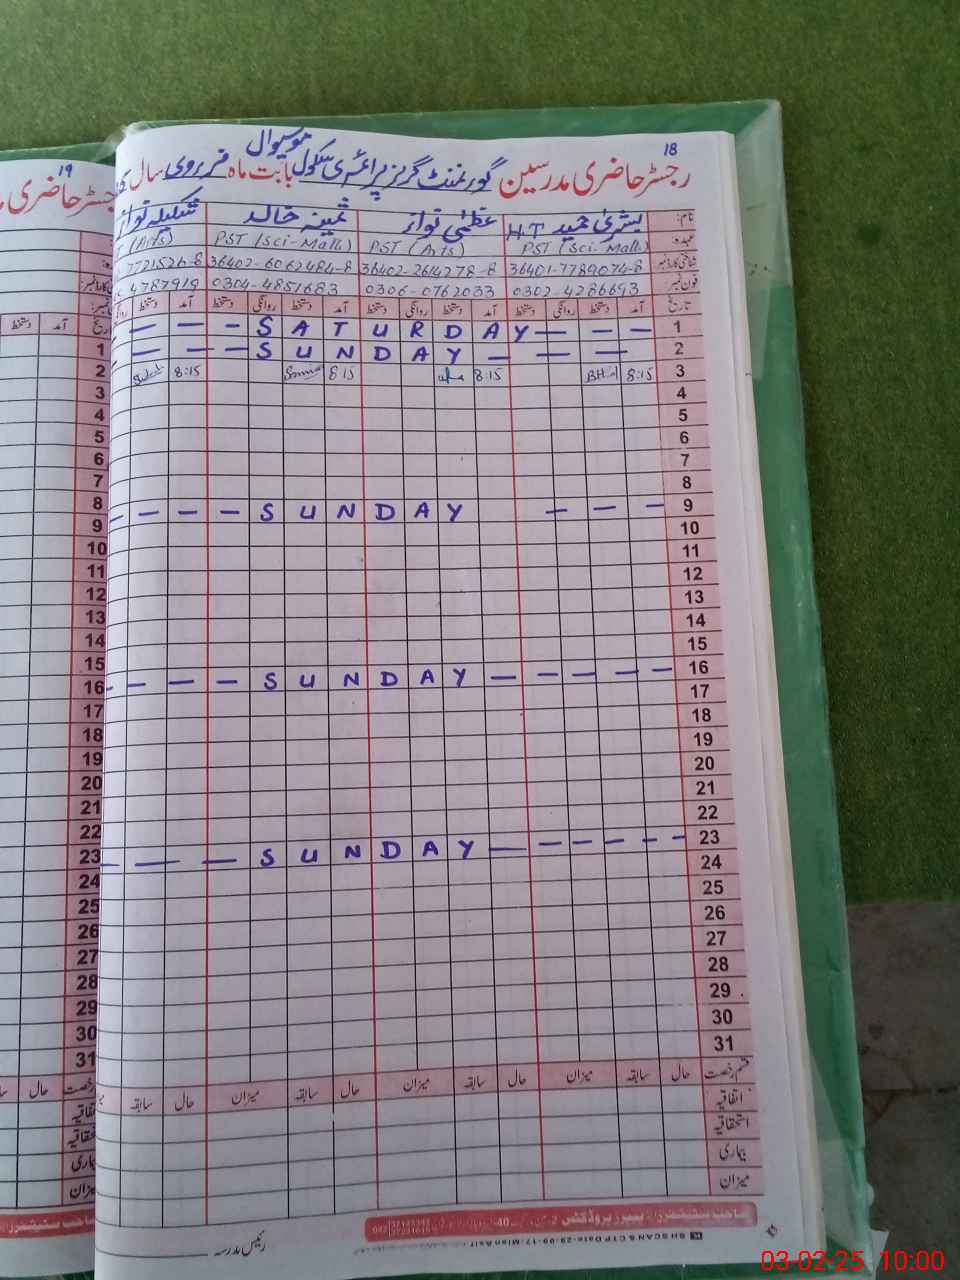 18
رجسٹر حاضری مدرسین گورنمنٹ گرلز پرائمری سکول موسیوال بابت ماہ فروری سال
نام: بشریٰ حمید H.T عظمیٰ نواز ثمینہ خالد شکیلہ نواز
عہدہ PST (Sci-Math) PST (Arts) PST (Sci-Math) (Arts)
شناختی کارڈ نمبر 36401-7789074-8 36402-2614278-8 36402-6062484-8 7721526-8
فون نمبر: 0302-4286693 0306-0762033 0304-4851683 4787919
تاریخ آمد دستخط روانگی دستخط آمد دستخط روانگی دستخط آمد دستخط روانگی دستخط آمد دستخط روانگی
1 — — — S A T U R D A Y — — —
2 — — — S U N D A Y — — —
3 8:15 8:15 8:15 8:15
4
5
6
7
8
9 — — — S U N D A Y — — — —
10
11
12
13
14
15
16 — — — — — S U N D A Y — — —
17
18
19
20
21
22
23 — — — — — — S U N D A Y — — —
24
25
26
27
28
29
30
31
قسم رخصت حال سابقہ میزان حال سابقہ میزان حال سابقہ میزان حال سابقہ
اتفاقیہ
استحقاقیہ
بیماری
میزان
رئیس مدرسہ
19
رجسٹر حاضری
تاریخ آمد دستخط
1
2
3
4
5
6
7
8
9
10
11
12
13
14
15
16
17
18
19
20
21
22
23
24
25
26
27
28
29
30
31
رخصت حال سابقہ
اتفاقیہ
بیماری
میزان
03-02-25 10:00